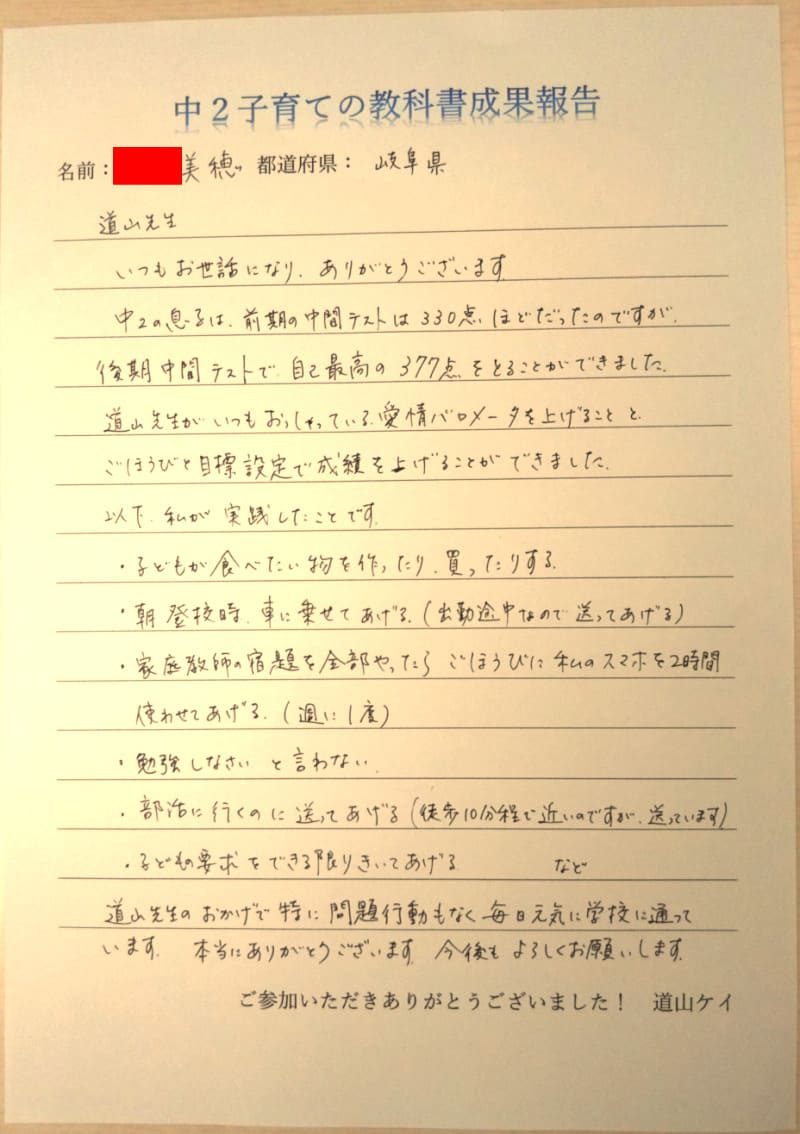 中２子育ての教科書成果報告
名前：美穂 都道府県： 岐阜県
道山先生
いつもお世話になり、ありがとうございます
中2の息子は、前期の中間テストは330点ほどだったのですが、
後期中間テストで、自己最高の377点をとることができました。
道山先生がいつもおっしゃっている、愛情バロメータを上げることと、
ごほうびと目標設定で成績を上げることができました。
以下、私が実践したことです。
・子どもが食べたい物を作ったり、買ったりする。
・朝登校時、車に乗せてあげる。(出勤途中なので送ってあげる)
・家庭教師の宿題を全部やったらごほうびに私のスマホを2時間
使わせてあげる。(週に1度)
・勉強しなさいと言わない。
・部活に行くのに送ってあげる(徒歩10分程で近いのですが、送っています)
・子どもの要求をできる限りきいてあげる など
道山先生のおかげで特に問題行動もなく毎日元気に学校に通って
います。 本当にありがとうございます。今後もよろしくお願いします。
ご参加いただきありがとうございました！ 道山ケイ